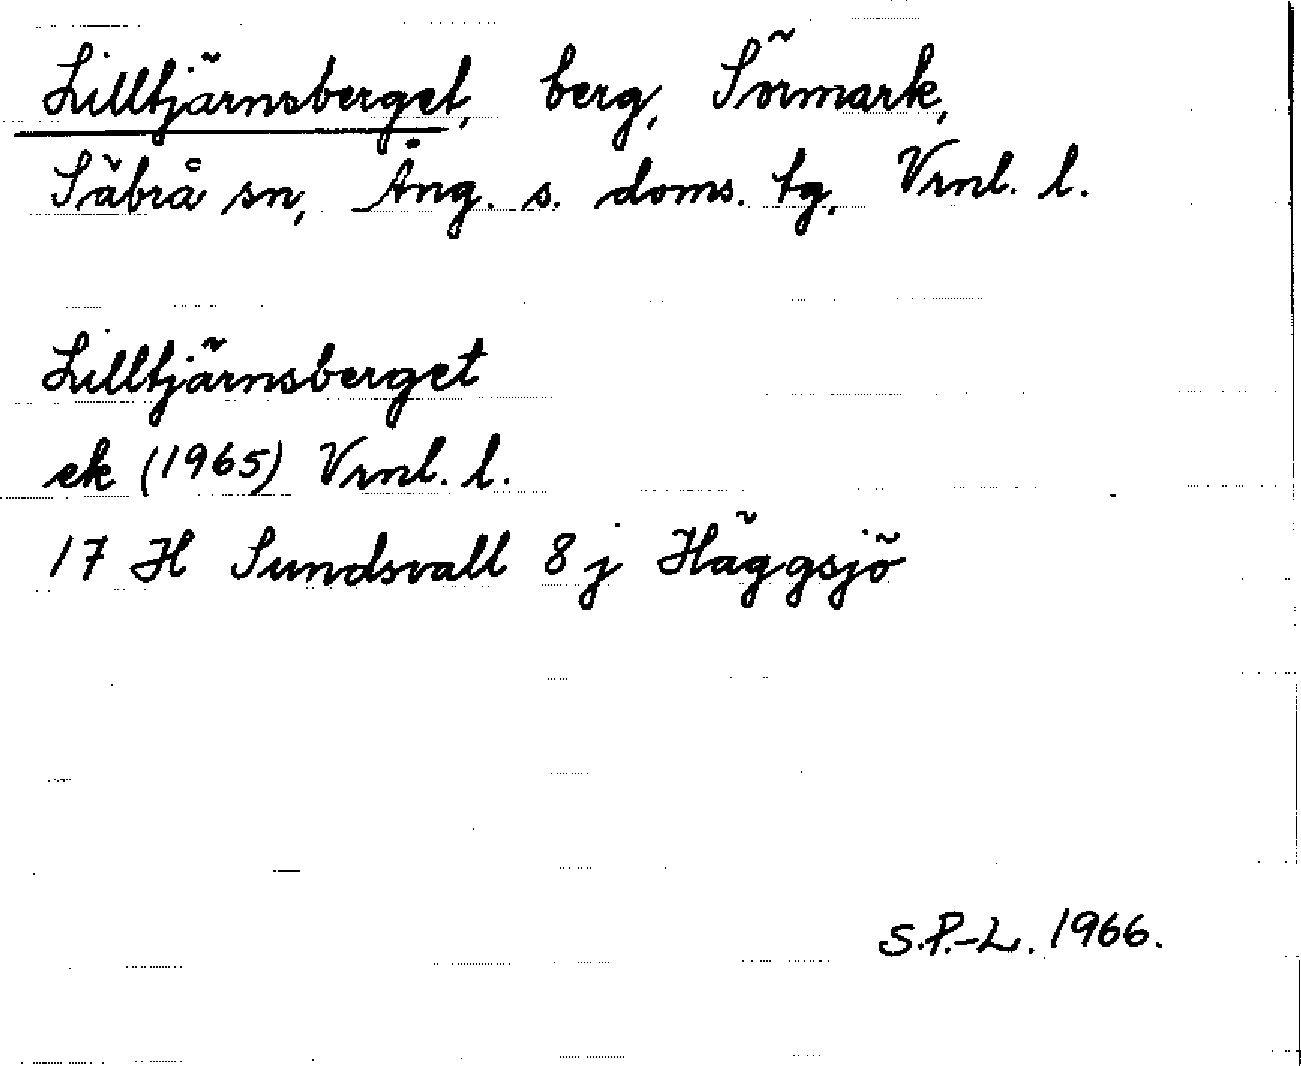 Lilltjärnsberget, berg, Sörmark,
Säbrå sn, Ång. s. doms. tg, Vrnl. l.
Lilltjärnsberget
ek (1965) Vrnl. l.
17 H Sundsvall 8 j Häggsjö
S.P.-L. 1966.